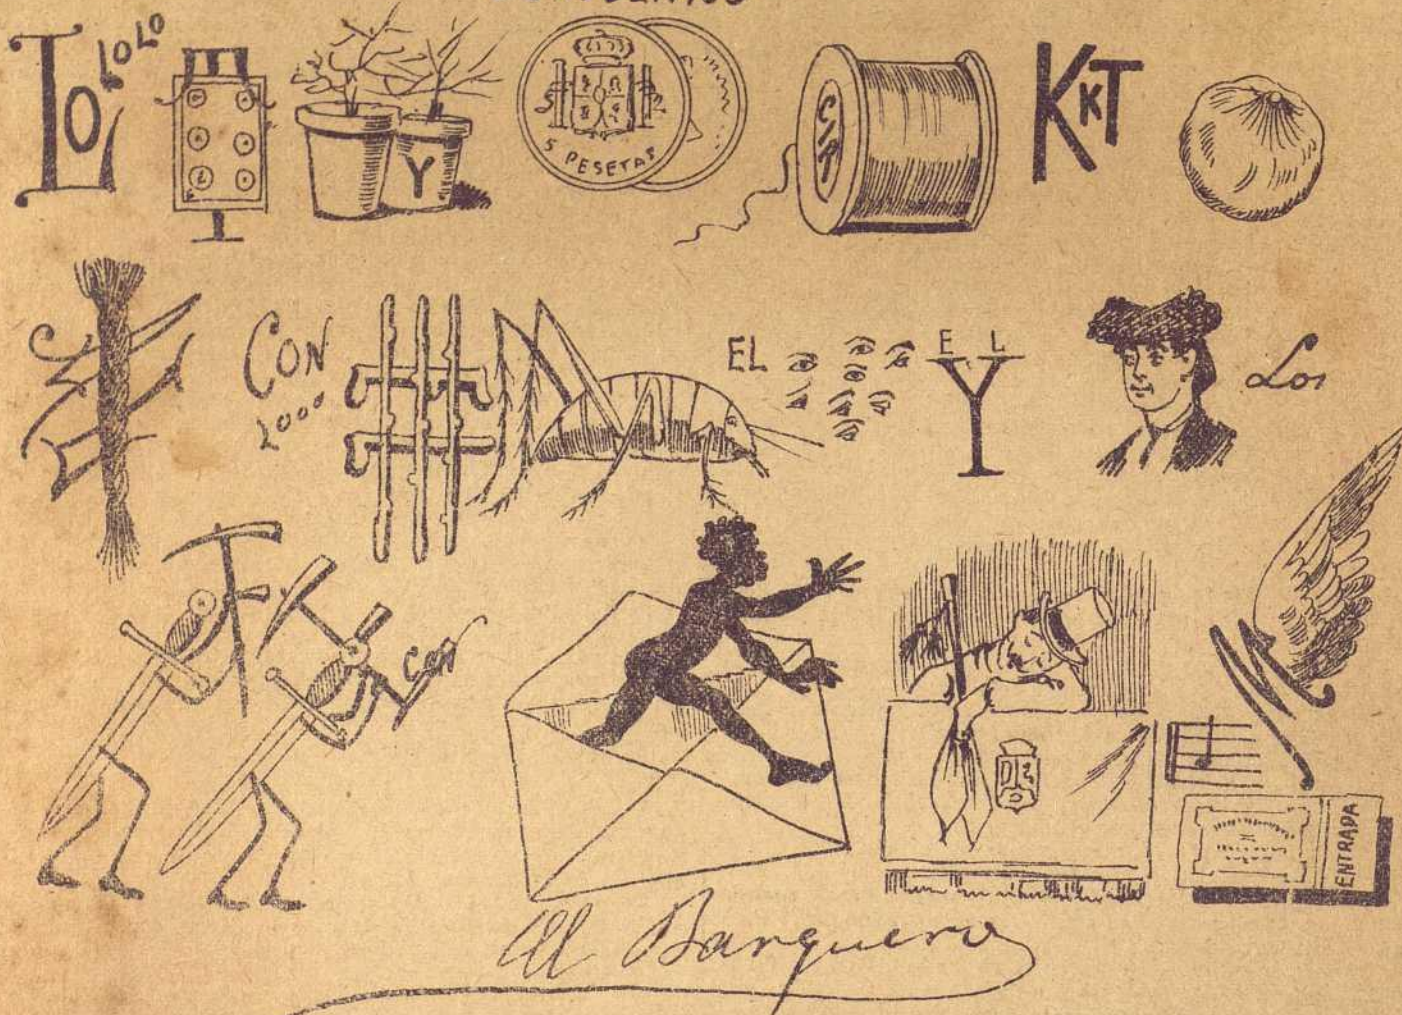 LO LO LO
Y
5 PESETAS
KKT
CON
EL
EL
Y
Los
CON
ENTRADA
El Barquero